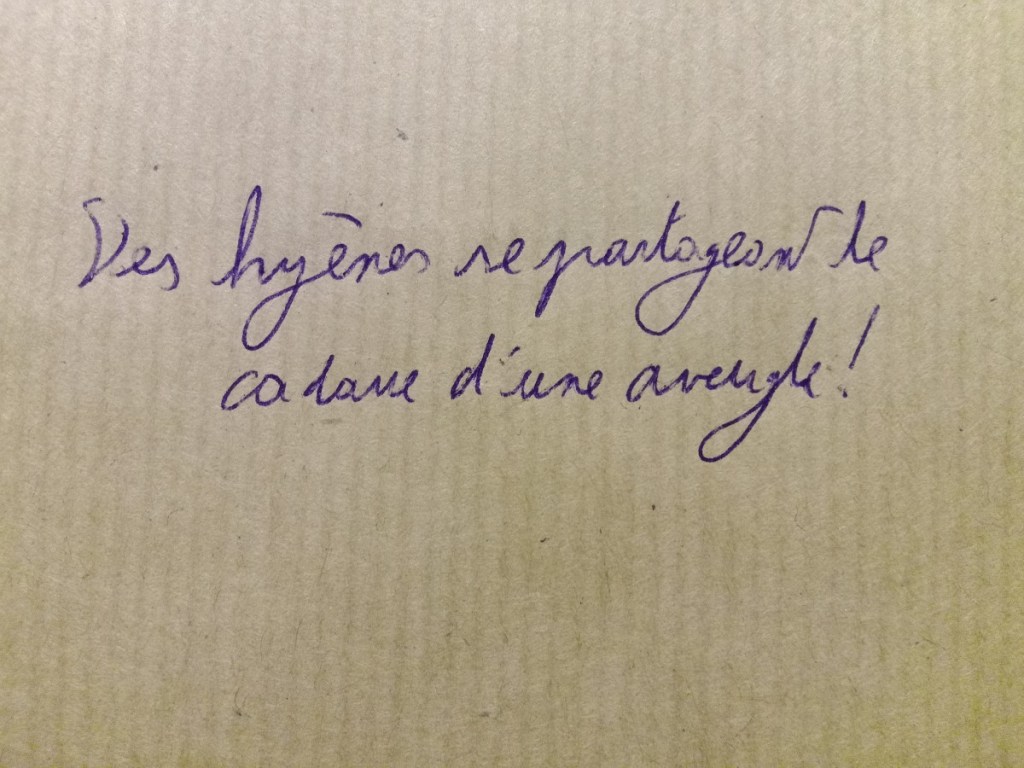 Des hyènes se partageant le
cadavre d'une aveugle !